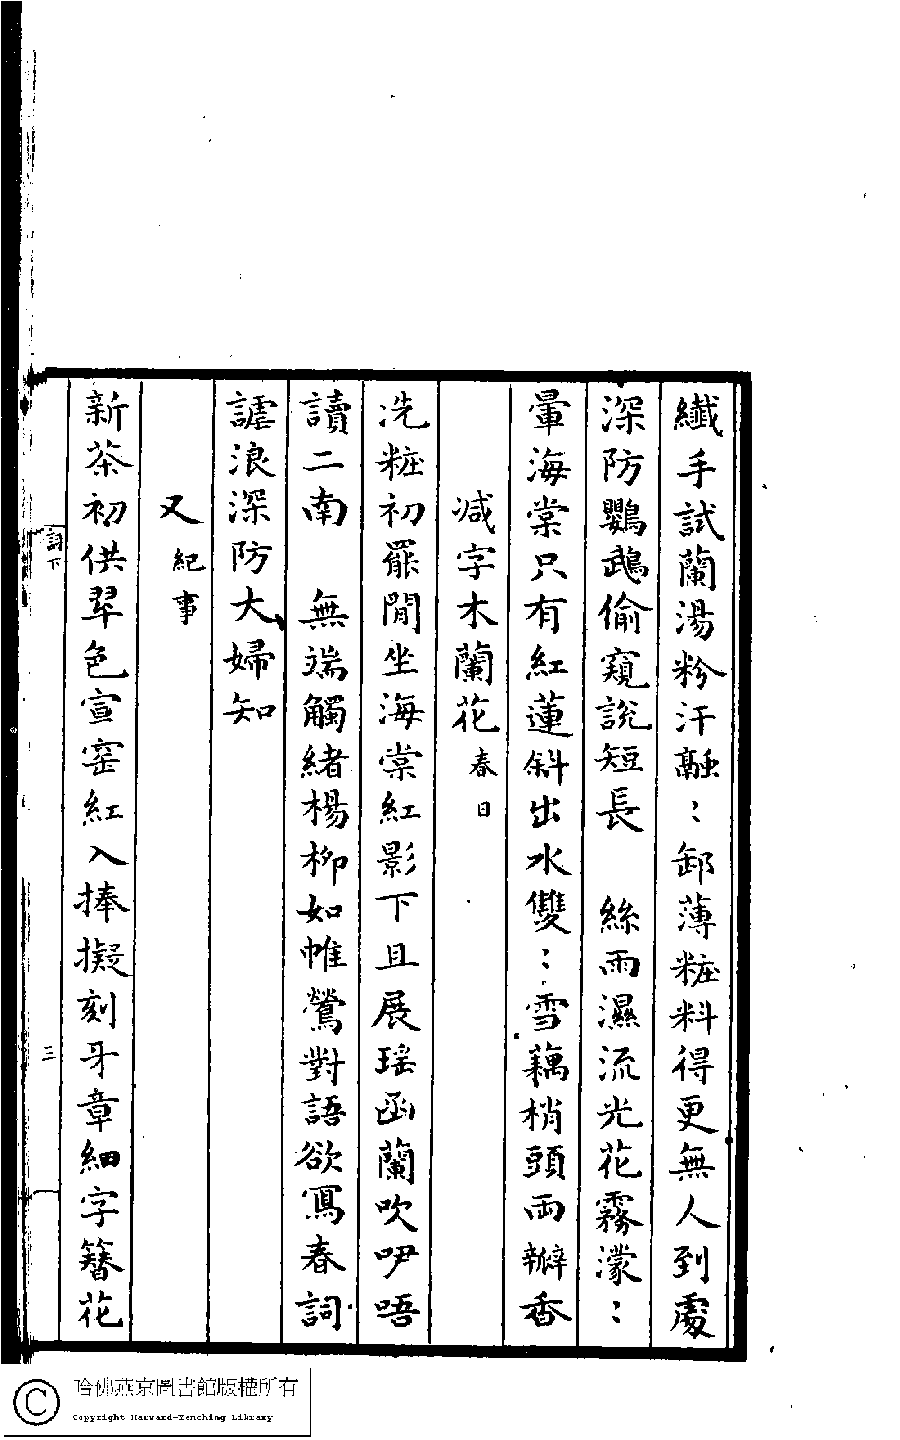 纖手試蘭湯粉汗融〻卸薄粧料得更無人到處
深防鸚鵡偷窺說短長　絲雨濕流光花霧濛〻
暈海棠只有紅蓮斜出水雙〻雪藕梢頭兩瓣香
減字木蘭花春日
洗粧初罷閒坐海棠紅影下且展瑶函蘭吹咿唔
讀二南　無端觸緒楊柳如帷鶯對語欲寫春詞
謔浪深防大婦知
又紀事
新茶初供翠色宣窑紅入捧擬刻牙章細字簪花
詩下
三
哈佛燕京圖書館版權所有
Copyright Harvard-Yenching Library